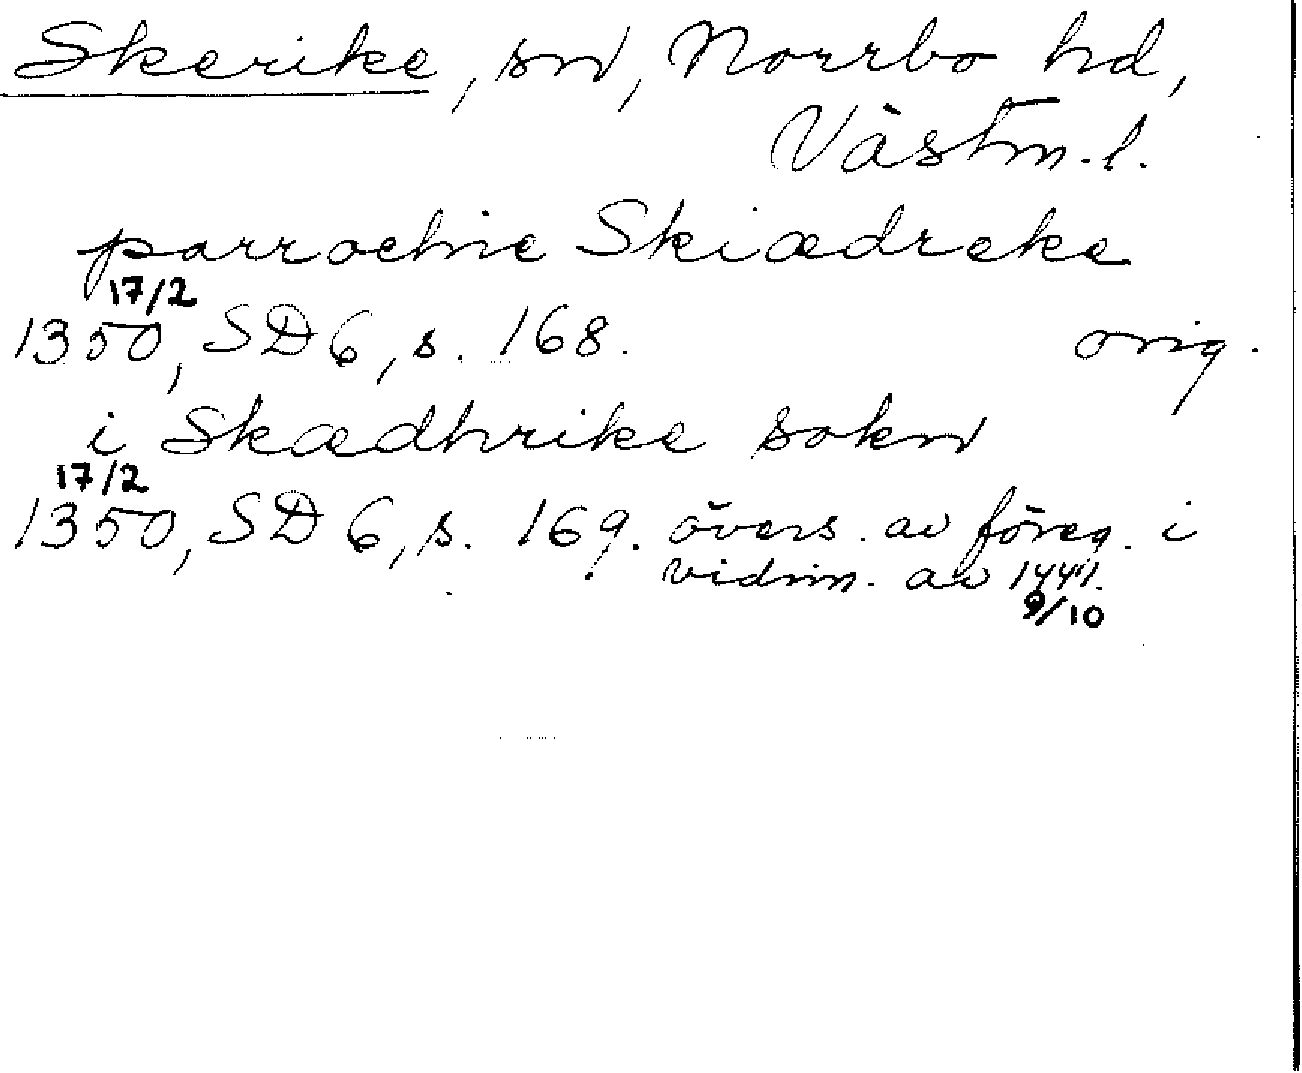 Skerike, sn, Norrbo hd,
Västm. l.
parrochie Skiædreke
17/2
1350, SD 6, s. 168. orig.
i Skædhrike sokn
17/2
1350, SD 6, s. 169. övers. av föreg. i
vidim. av 1441.
9/10